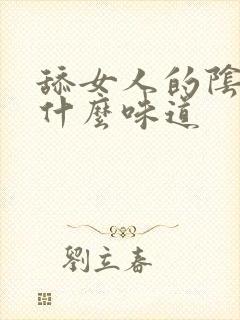 舔女人的陰
什麼味道
劉立春